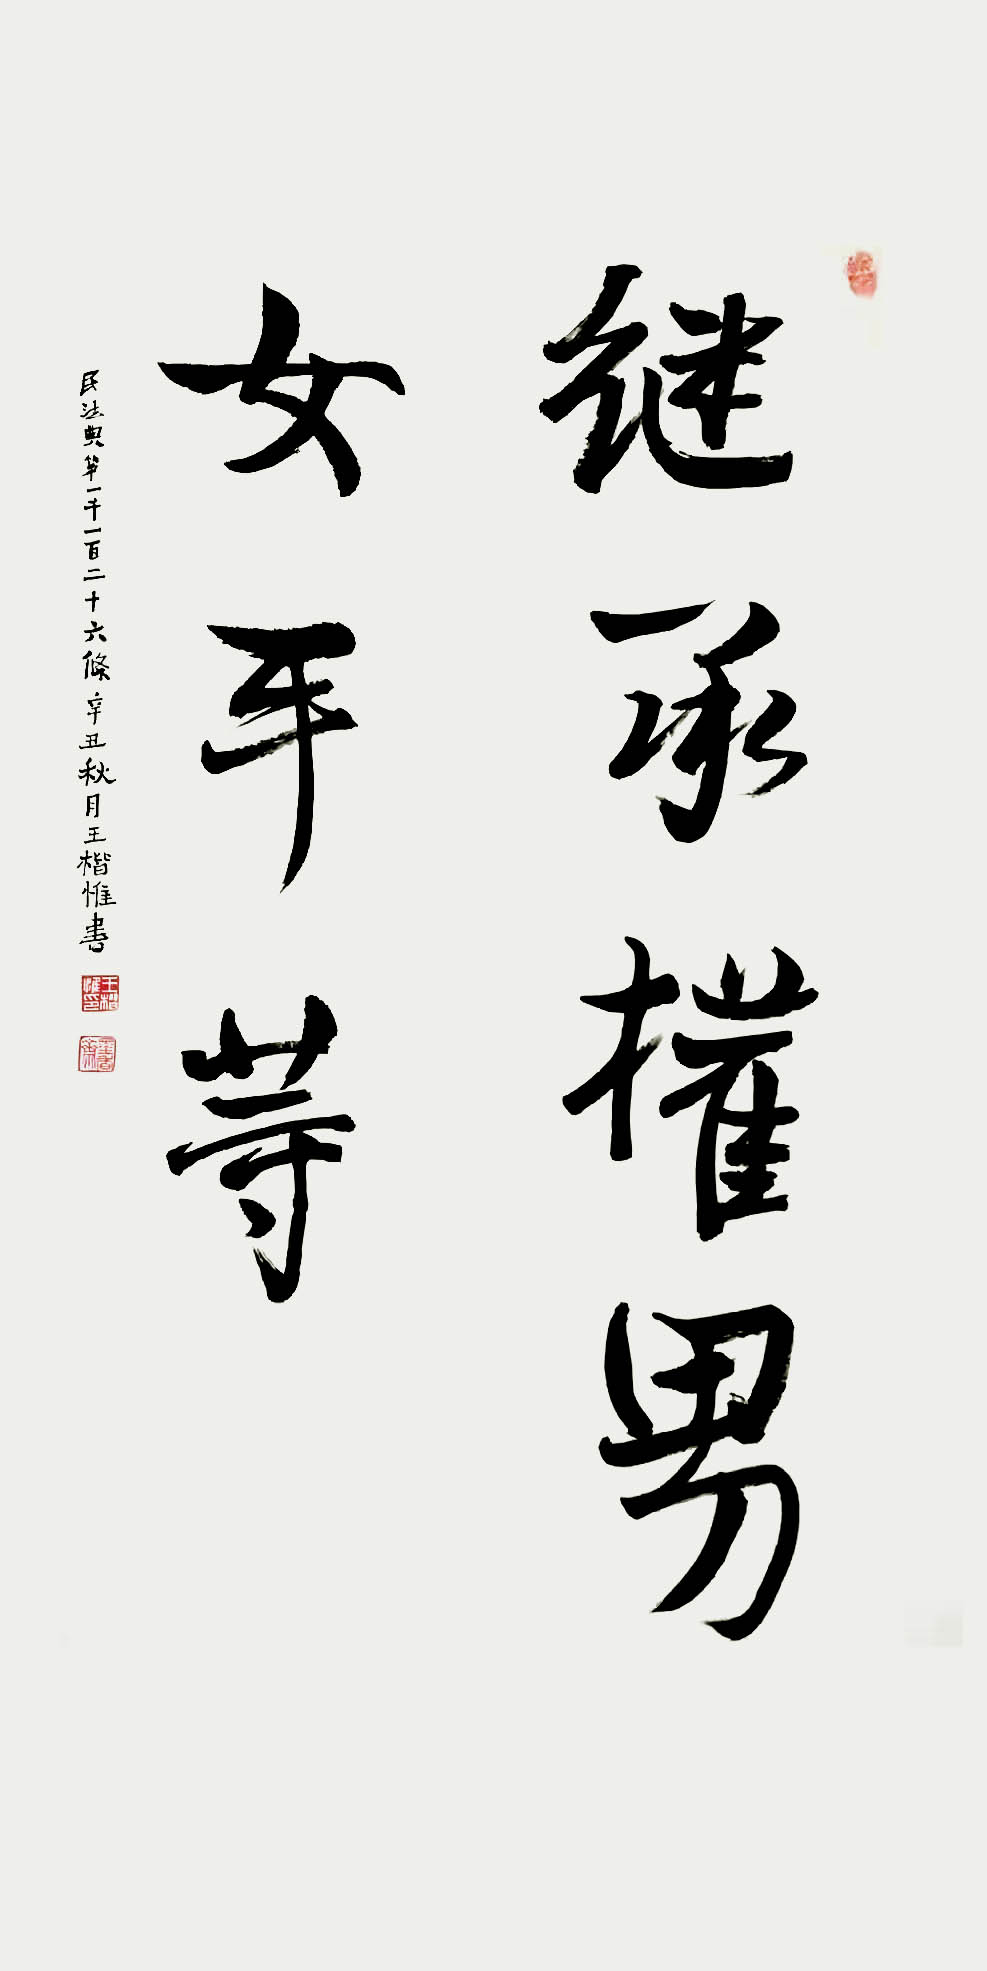 继承權男
女平等
民法典第一千一百二十六條辛丑秋月王楷惟書
王楷惟印